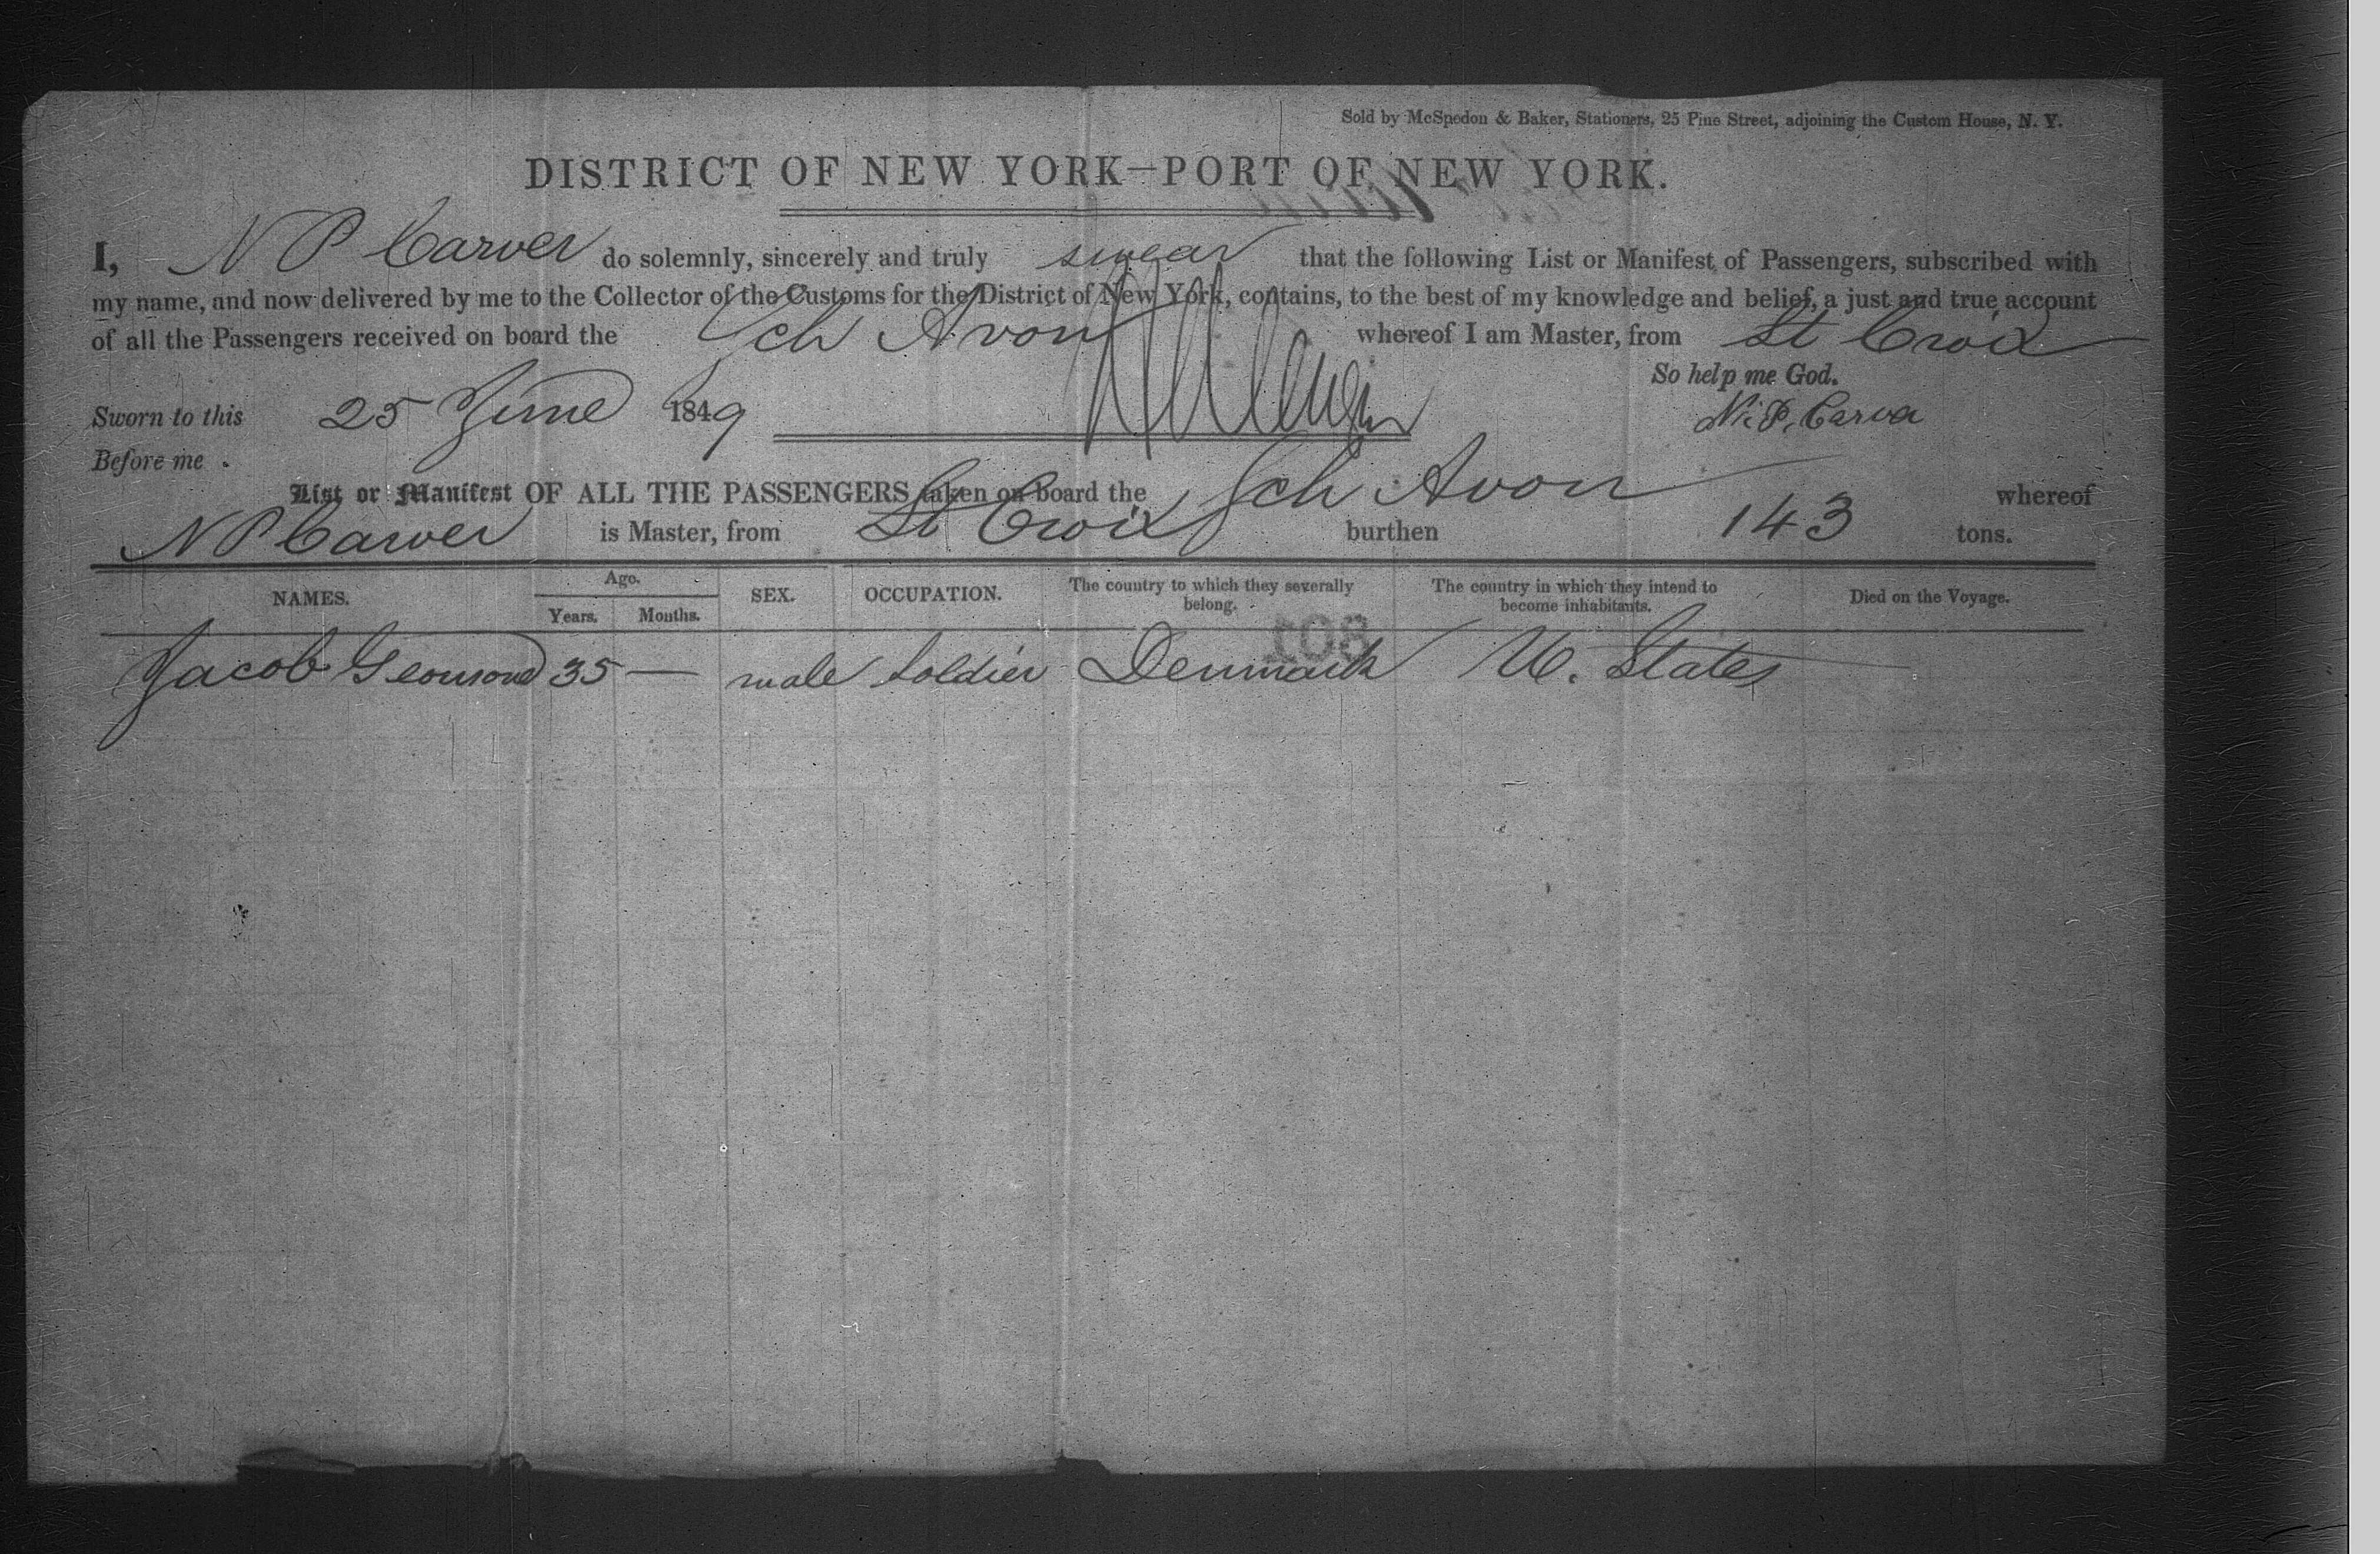 Sold by McSpedon & Baker, Stationers, 25 Pine Street, adjoining the Custom House, N. Y.
DISTRICT OF NEW YORK—PORT OF NEW YORK.
I, N P Carver do solemnly, sincerely and truly swear that the following List or Manifest of Passengers, subscribed with
my name, and now delivered by me to the Collector of the Customs for the District of New York, contains, to the best of my knowledge and belief, a just and true account
of all the Passengers received on board the Sch Avon whereof I am Master, from St Croix
So help me God.
Sworn to this 25 June 1849 N. P. Carver
Before me .
List or Manifest OF ALL THE PASSENGERS taken on board the Sch Avon whereof
N P Carver is Master, from St Croix burthen 143 tons.
NAMES. Age. Years. Months. SEX. OCCUPATION. The country to which they severally belong. The country in which they intend to become inhabitants. Died on the Voyage.
Jacob 35 — male Soldier Denmark U. States